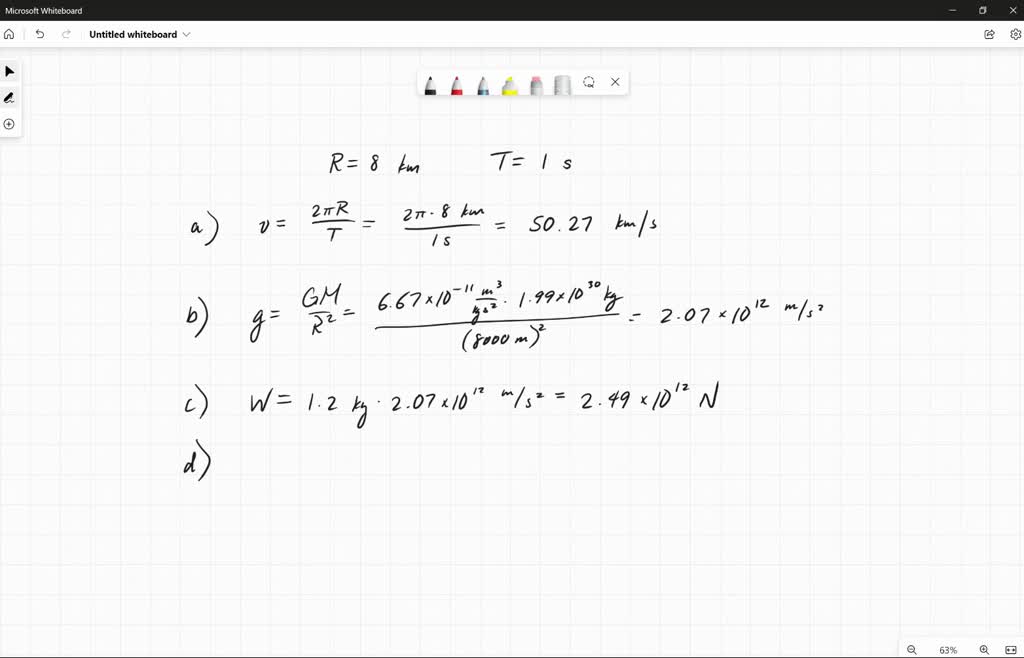 Microsoft Whiteboard
Untitled whiteboard
R = 8 km T = 1 s
a) v = 2πR/T = 2π · 8 km / 1 s = 50.27 km/s
b) g = GM/R² = 6.67 × 10⁻¹¹ m³/kg s² · 1.99 × 10³⁰ kg / (8000 m)² = 2.07 × 10¹² m/s²
c) W = 1.2 kg · 2.07 × 10¹² m/s² = 2.49 × 10¹² N
d)
63%